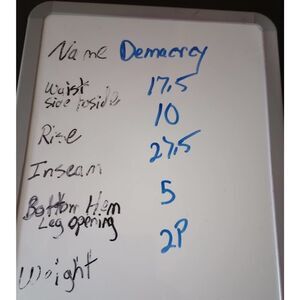 Name Demacrcy
Waist 17.5
side to side
10
Rise
27.5
Inseam
5
Bottom Hem
Leg opening
2P
Weight